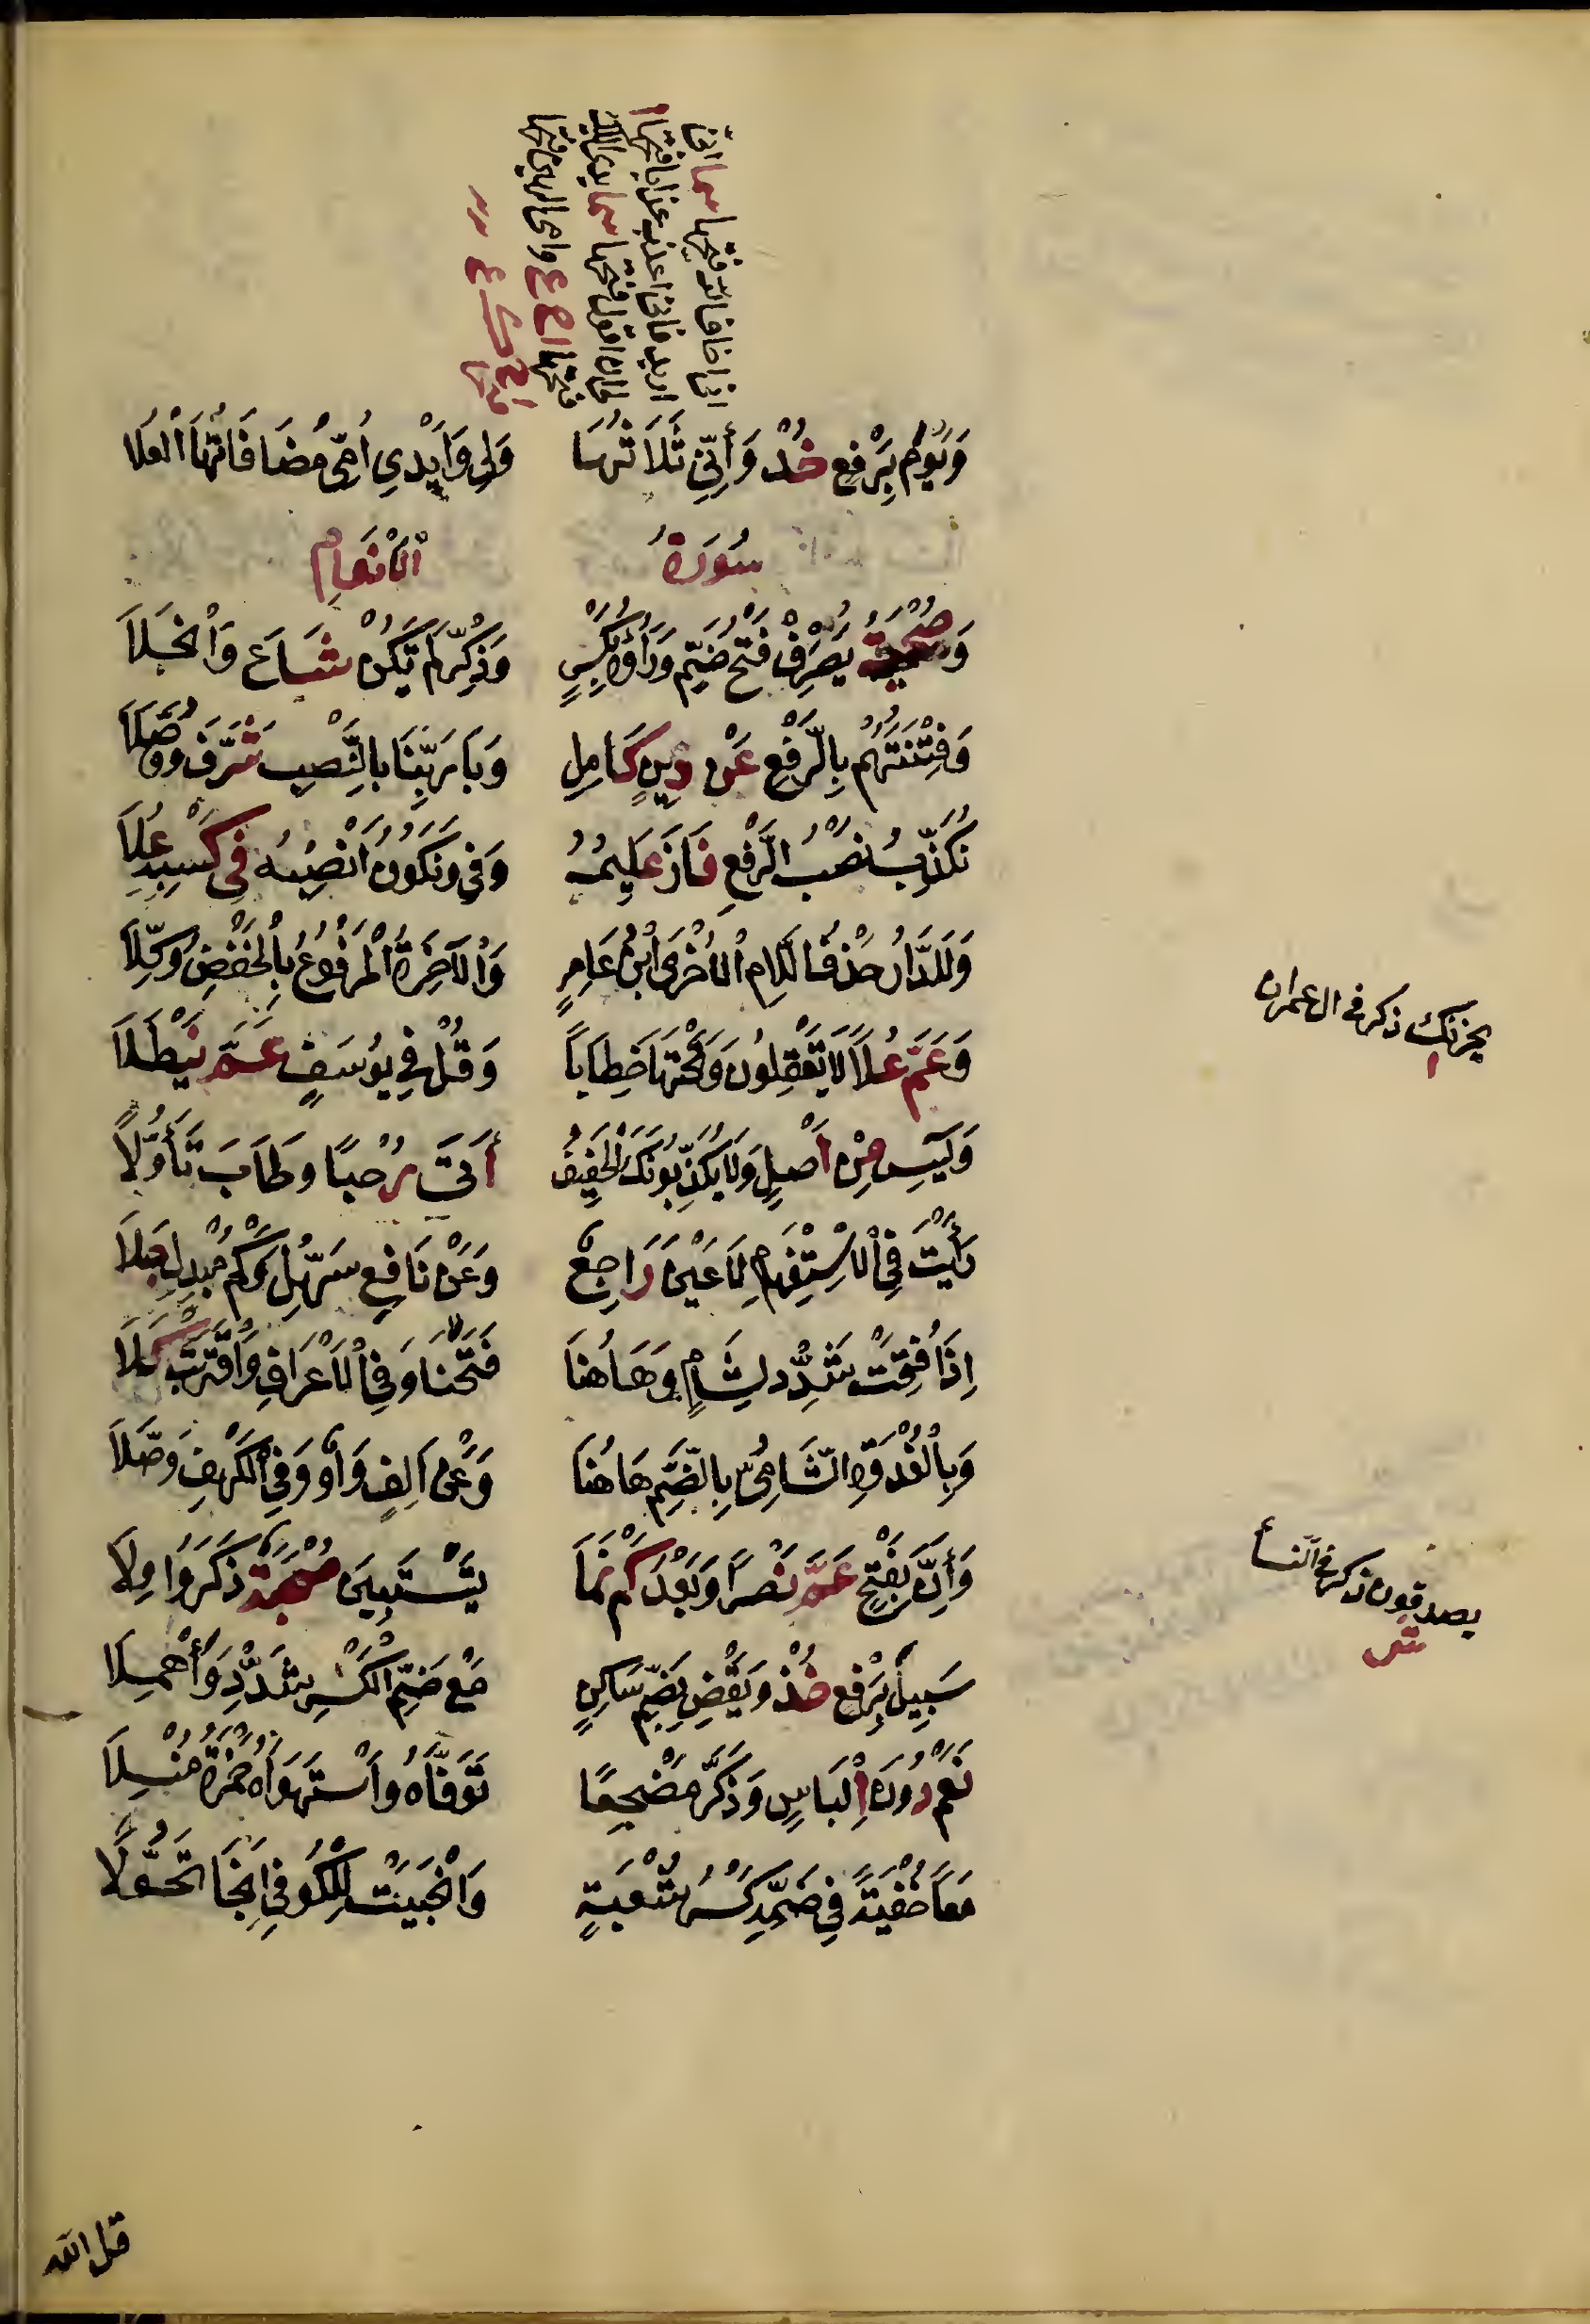 انى اخاف الله فتحها سما انى
اريد فانى اعذبه عذابا فتحها ا
لى ان اقول فتحها سما يدى اليك
فتحها ا ع ع وامى الهين فتحها
وَيَوْمُ بِرَفْعٍ خُذْ وَأَنِّي ثَلَاثُهَا وَلِي وَأَيْدِي أُمِّي مُضَافَاتُهَا الْعُلَا
سُورَةُ الْأَنْعَامِ
وَصُحْبَةُ يُصْرَفْ فَتْحُ ضَمٍّ وَرَاؤُهُ بِكَسْرٍ وَذَكِّرْ لَمْ تَكُنْ شَاعَ وَانْجَلَا
وَفِتْنَتُهُمْ بِالرَّفْعِ عَنْ دِينِ كَامِلٍ وَبَا رَبِّنَا بِالنَّصْبِ شَرَّفَ وُصَّلَا
نُكَذِّبُ نَصْبُ الرَّفْعِ فَازَ عَلِيمُهُ وَفِي وَنَكُونُ انْصِبْهُ فِي كَسْبِهِ عُلَا
وَلَلدَّارُ حَذْفُ اللَّامِ الْأُخْرَى ابْنُ عَامِرٍ وَالْآخِرَةُ الْمَرْفُوعُ بِالْخَفْضِ وُكِّلَا
وَعَمَّ عُلًا لَا تَعْقِلُونَ وَتَحْتَهَا خِطَابًا وَقُلْ فِي يُوسُفٍ عَمَّ نَيْطَلَا
وَيس مِنْ أَصْلٍ وَلَا يُكْذِبُونَكَ الْخَفِيفُ أَتَى رُحْبًا وَطَابَ تَأَوُّلَا
رَأَيْتَ فِي الْاسْتِفْهَامِ لَا عَيْنَ رَاجِعٌ وَعَنْ نَافِعٍ سَهِّلْ وَكَمْ مُبْدِلٍ جَلَا
إِذَا فُتِحَتْ شَدِّدْ لِشَامٍ وَهَاهُنَا فَتَحْنَا وَفِي الْأَعْرَافِ وَاقْتَرَبَتْ كَلَا
وَبِالْغُدْوَةِ الشَّامِيُّ بِالضَّمِّ هَاهُنَا وَعَنْ أَلِفٍ وَاوٌ وَفِي الْكَهْفِ وَصَّلَا
وَأَنَّ بِفَتْحٍ عَمَّ نَصْرًا وَبَعْدُ كَمْ نَمَا يَسْتَبِينَ صُحْبَةٌ ذَكَّرُوا وِلَا
سَبِيلَ بِرَفْعٍ خُذْ وَيَقْضِ بِضَمِّ سَاكِنٍ مَعْ ضَمِّ الْكَسْرِ شَدِّدْ وَأَهْمِلَا
نَعَمْ دُونَ إِلْبَاسٍ وَذَكَّرَ مُضْجِعًا تَوَفَّاهُ وَاسْتَهْوَاهُ حَمْزَةُ مُنْسِلَا
مَعًا خُفْيَةً فِي ضَمِّهِ كَسْرُ شُعْبَةٍ وَأَنْجَيْتَ لِلْكُوفِيِّ أَنْجَا تَحَوَّلَا
يحزنك ذكر فى ال عمران
ا
يصدفون ذكر فى النسأ
ش
قل الله